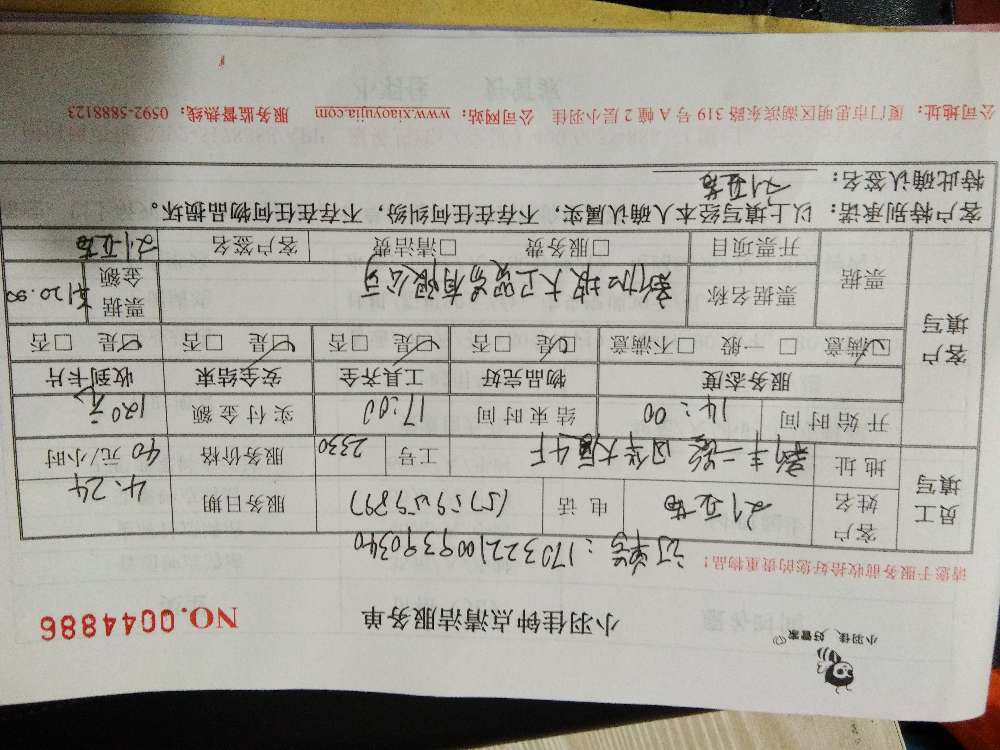 小羽佳，好管家
小羽佳钟点清洁服务单
NO.0044886
请您于服务前收拾好您的贵重物品！
订单号：170322100939 0340
员工填写
客户姓名 电话 服务日期 4.24
地址 新丰二路 大厦4F 工号 2330 服务价格 40元/小时
开始时间 14:00 结束时间 17:00 实付金额 120元
客户填写
服务态度 物品完好 工具齐全 安全结束 收到卡片
☑满意 □一般 □不满意 ☑是 □否 ☑是 □否 ☑是 □否 ☑是 □否
票据 票据名称 新加坡大卫贸易有限公司 票据金额 120.00
开票项目 □服务费 □清洁费 客户签名
客户特别承诺：以上填写经本人确认属实，不存在任何纠纷，不存在任何物品损坏。
特此确认签名：
公司地址：厦门市思明区湖滨东路319号A幢2层小羽佳 公司网站：www.xiaoyujia.com 服务监督热线：0592-5888123